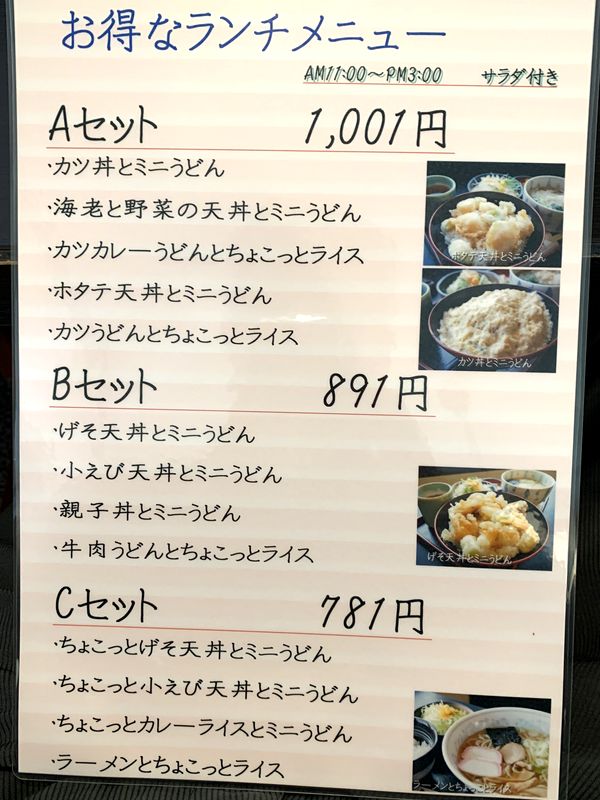 お得なランチメニュー
AM11:00〜PM3:00 サラダ付き
Aセット 1,001円
・カツ丼とミニうどん
・海老と野菜の天丼とミニうどん
・カツカレーうどんとちょこっとライス
・ホタテ天丼とミニうどん
・カツうどんとちょこっとライス
ホタテ天丼とミニうどん
カツ丼とミニうどん
Bセット 891円
・げそ天丼とミニうどん
・小えび天丼とミニうどん
・親子丼とミニうどん
・牛肉うどんとちょこっとライス
げそ天丼とミニうどん
Cセット 781円
・ちょこっとげそ天丼とミニうどん
・ちょこっと小えび天丼とミニうどん
・ちょこっとカレーライスとミニうどん
・ラーメンとちょこっとライス
ラーメンとちょこっとライス